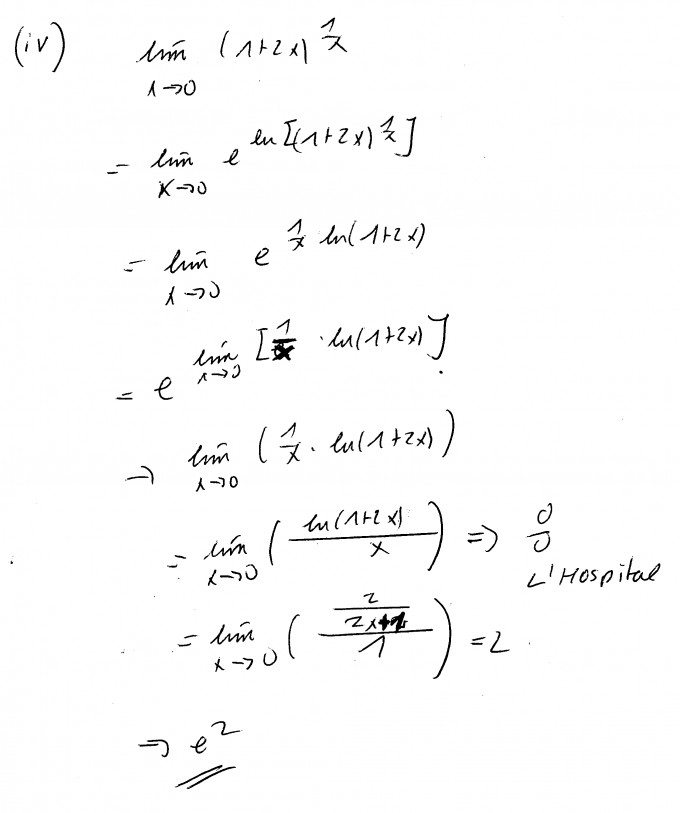 (iv) lim x→0 (1+2x)^(1/x)
= lim x→0 e^(ln[(1+2x)^(1/x)])
= lim x→0 e^(1/x ln(1+2x))
= e^(lim x→0 [1/x · ln(1+2x)])
→ lim x→0 (1/x · ln(1+2x))
= lim x→0 (ln(1+2x)/x) => 0/0
L'Hospital
= lim x→0 ((2/(2x+1))/1) = 2
→ e^2